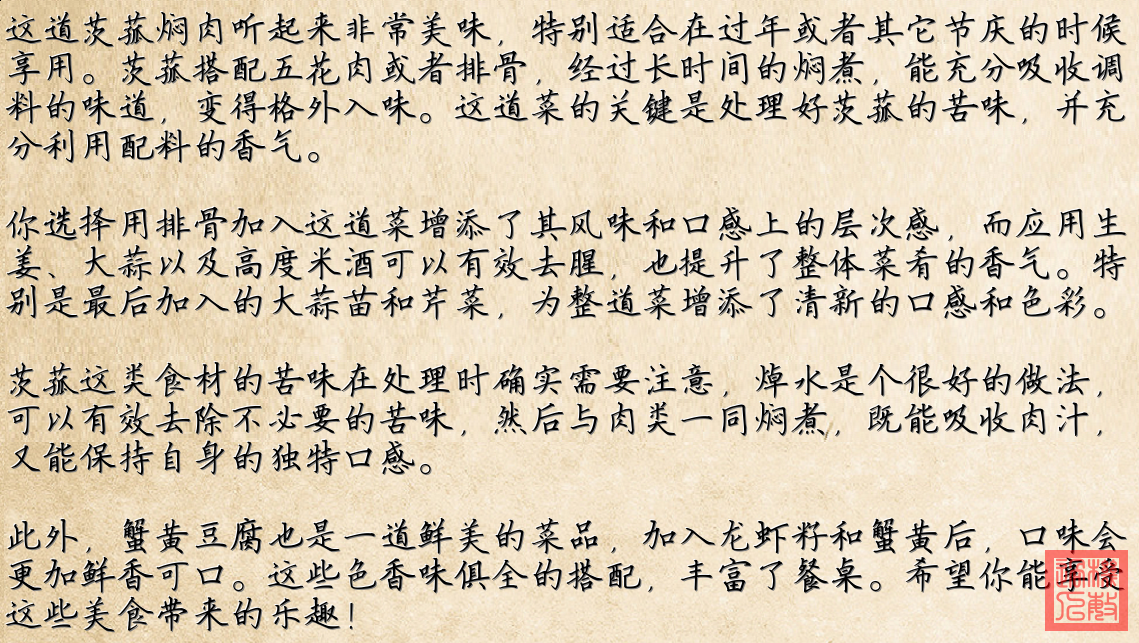 这道茨菰焖肉听起来非常美味，特别适合在过年或者其它节庆的时候
享用。茨菰搭配五花肉或者排骨，经过长时间的焖煮，能充分吸收调
料的味道，变得格外入味。这道菜的关键是处理好茨菰的苦味，并充
分利用配料的香气。
你选择用排骨加入这道菜增添了其风味和口感上的层次感，而应用生
姜、大蒜以及高度米酒可以有效去腥，也提升了整体菜肴的香气。特
别是最后加入的大蒜苗和芹菜，为整道菜增添了清新的口感和色彩。
茨菰这类食材的苦味在处理时确实需要注意，焯水是个很好的做法，
可以有效去除不必要的苦味，然后与肉类一同焖煮，既能吸收肉汁，
又能保持自身的独特口感。
此外，蟹黄豆腐也是一道鲜美的菜品，加入龙虾籽和蟹黄后，口味会
更加鲜香可口。这些色香味俱全的搭配，丰富了餐桌。希望你能享受
这些美食带来的乐趣！